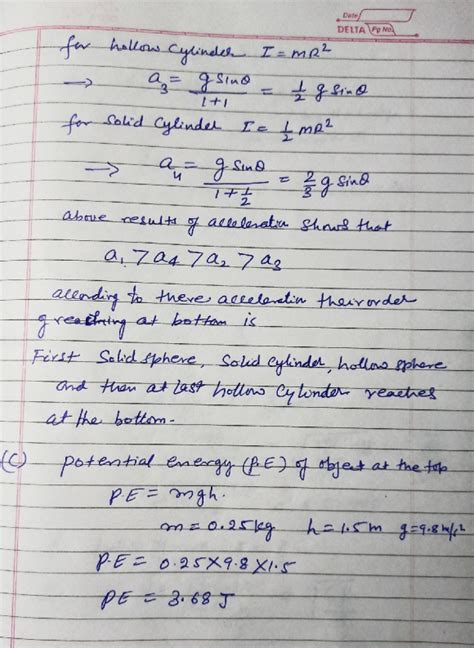 Date
DELTA Pg No.
for hollow cylinder I = mR²
→ a₃ = g sinθ / 1+1 = 1/2 g sinθ
for solid cylinder I = 1/2 mR²
→ a₄ = g sinθ / 1+1/2 = 2/3 g sinθ
above results of acceleration shows that
a₁ > a₄ > a₂ > a₃
according to there acceleration their order
of reaching at bottom is
First Solid sphere, Solid cylinder, hollow sphere
and then at last hollow cylinder reaches
at the bottom.
(C) potential energy (P.E) of object at the top
P.E = mgh.
m = 0.25kg h = 1.5m g=9.8m/s²
P.E = 0.25×9.8×1.5
PE = 3.68 J